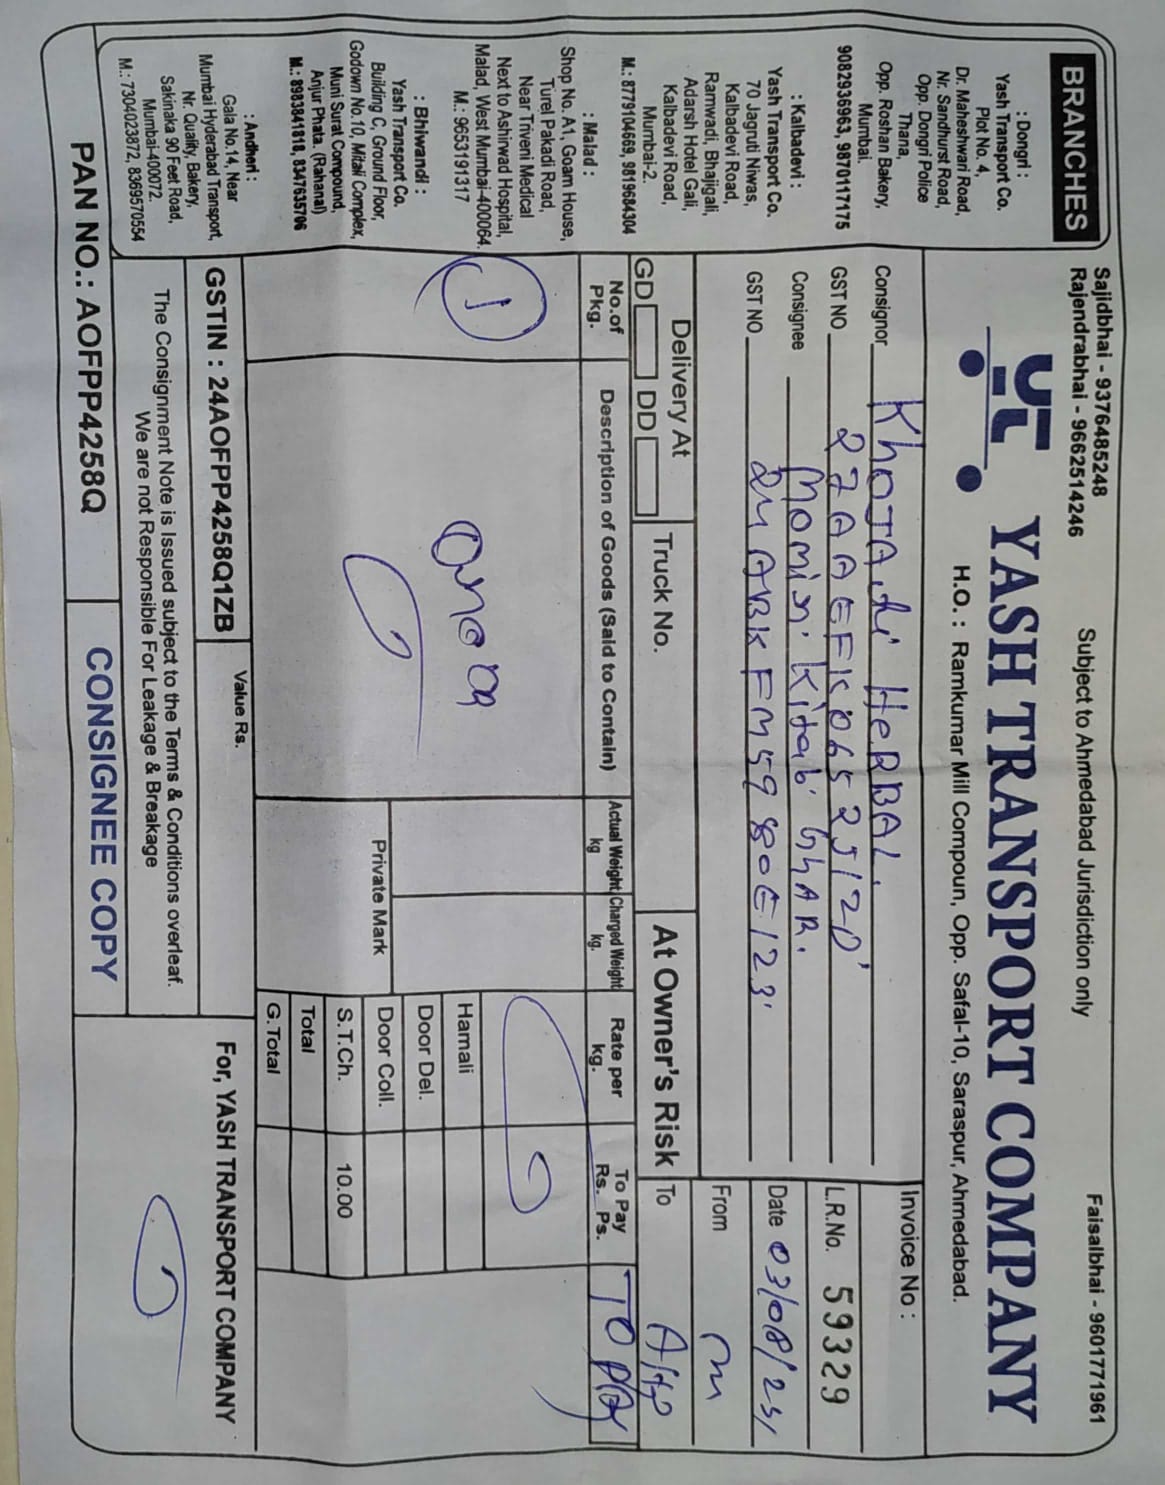 BRANCHES
: Dongri :
Yash Transport Co.
Plot No. 4,
Dr. Maheshwari Road,
Nr. Sandhurst Road,
Opp. Dongri Police
Thana,
Opp. Roshan Bakery,
Mumbai.
9082936963, 9870117175
: Kalbadevi :
Yash Transport Co.
70 Jagruti Niwas,
Kalbadevi Road,
Ramwadi, Bhajigali,
Adarsh Hotel Gali,
Kalbadevi Road,
Mumbai-2.
M.: 8779104669, 9819684304
: Malad :
Shop No. A1, Goam House,
Turel Pakadi Road,
Near Triveni Medical
Next to Ashirwad Hospital,
Malad, West Mumbai-400064.
M.: 9653191317
: Bhiwandi :
Yash Transport Co.
Building C, Ground Floor,
Godown No.10, Mitali Complex,
Muni Surat Compound,
Anjur Phata. (Rahanal)
M.: 8983841818, 8347635706
: Andheri :
Gala No.14, Near
Mumbai Hyderabad Transport,
Nr. Quality, Bakery,
Sakinaka 90 Feet Road,
Mumbai-400072.
M.: 7304023872, 8369570554
Sajidbhai - 9376485248
Rajendrabhai - 9662514246
Subject to Ahmedabad Jurisdiction only
Faisalbhai - 9601771961
YASH TRANSPORT COMPANY
H.O. : Ramkumar Mill Compoun, Opp. Safal-10, Saraspur, Ahmedabad.
Consignor KhOJAti HeRBAL.
GST NO 27AAEFK0652J1ZD
Consignee Momin Kitab GhAR.
GST NO 24ABKFM5980E1Z3
Invoice No :
L.R.No. 59329
Date 03/08/23
From m
To
Delivery At
GD DD
Truck No.
At Owner's Risk
No.of Pkg.
Description of Goods (Said to Contain)
Actual Weight kg
Charged Weight kg.
Rate per kg.
To Pay Rs. Ps.
TO PAY
1
Private Mark
Hamali
Door Del.
Door Coll.
S.T.Ch. 10.00
Total
G.Total
GSTIN : 24AOFPP4258Q1ZB
Value Rs.
The Consignment Note is Issued subject to the Terms & Conditions overleaf.
We are not Responsible For Leakage & Breakage
For, YASH TRANSPORT COMPANY
PAN NO.: AOFPP4258Q
CONSIGNEE COPY